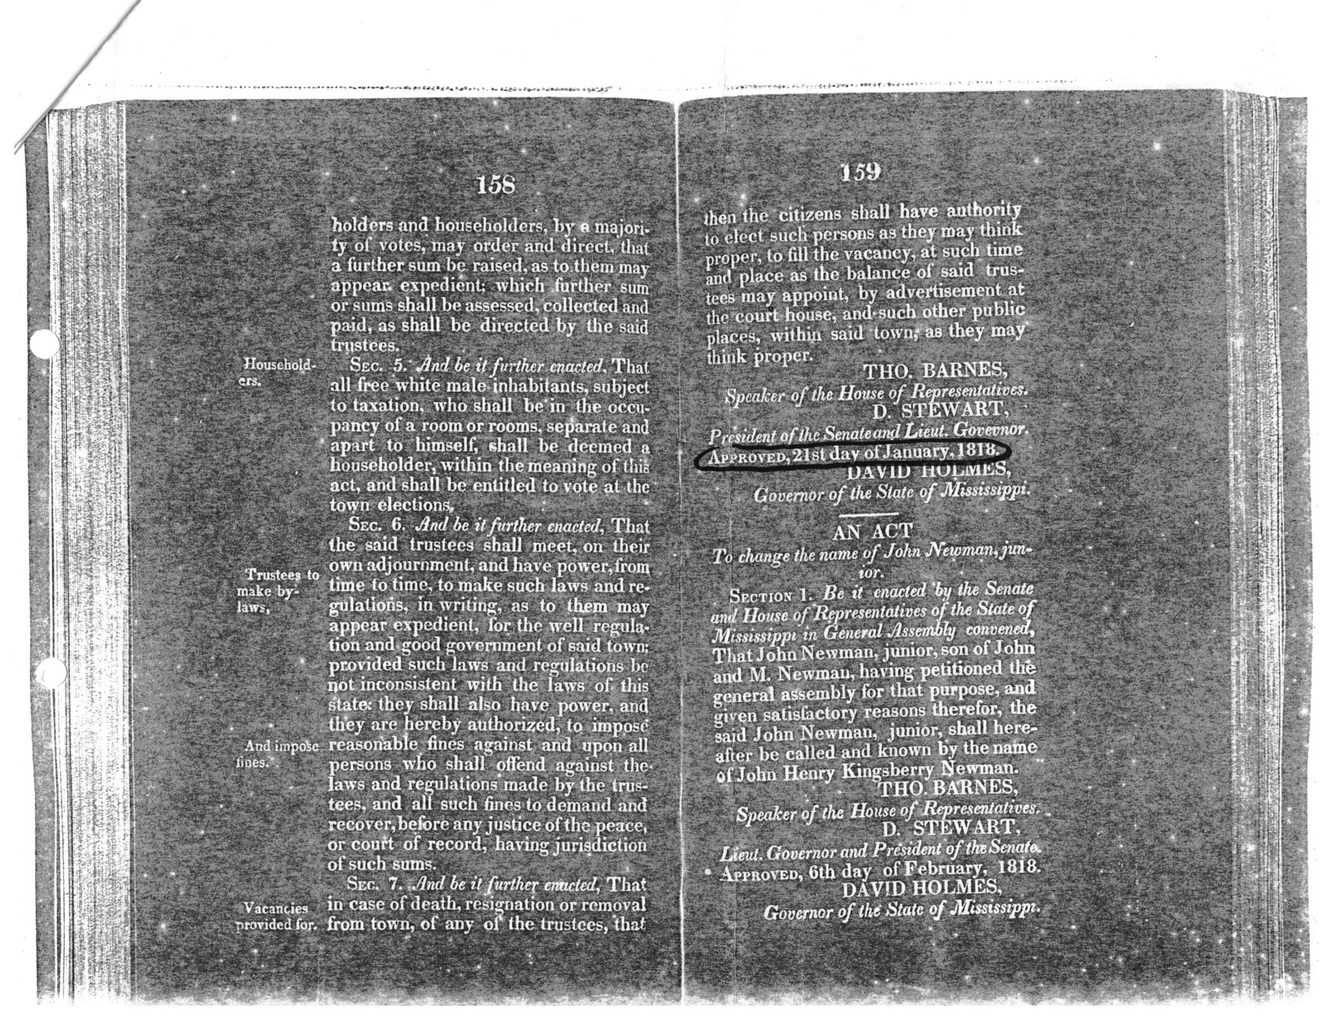 158
holders and householders, by a majori-
ty of votes, may order and direct, that
a further sum be raised, as to them may
appear expedient; which further sum
or sums shall be assessed, collected and
paid, as shall be directed by the said
trustees.
Household-
ers.
SEC. 5. And be it further enacted, That
all free white male inhabitants, subject
to taxation, who shall be in the occu-
pancy of a room or rooms, separate and
apart to himself, shall be deemed a
householder, within the meaning of this
act, and shall be entitled to vote at the
town elections.
SEC. 6. And be it further enacted, That
the said trustees shall meet, on their
own adjournment, and have power, from
Trustees to
make by-
laws,
time to time, to make such laws and re-
gulations, in writing, as to them may
appear expedient, for the well regula-
tion and good government of said town;
provided such laws and regulations be
not inconsistent with the laws of this
state: they shall also have power, and
they are hereby authorized, to impose
And impose
fines.
reasonable fines against and upon all
persons who shall offend against the
laws and regulations made by the trus-
tees, and all such fines to demand and
recover, before any justice of the peace,
or court of record, having jurisdiction
of such sums.
SEC. 7. And be it further enacted, That
Vacancies
provided for.
in case of death, resignation or removal
from town, of any of the trustees, that
159
then the citizens shall have authority
to elect such persons as they may think
proper, to fill the vacancy, at such time
and place as the balance of said trus-
tees may appoint, by advertisement at
the court house, and such other public
places, within said town, as they may
think proper.
THO. BARNES,
Speaker of the House of Representatives.
D. STEWART,
President of the Senate and Lieut. Governor.
APPROVED, 21st day of January, 1818.
DAVID HOLMES,
Governor of the State of Mississippi.
AN ACT
To change the name of John Newman, jun-
ior.
SECTION 1. Be it enacted by the Senate
and House of Representatives of the State of
Mississippi in General Assembly convened,
That John Newman, junior, son of John
and M. Newman, having petitioned the
general assembly for that purpose, and
given satisfactory reasons therefor, the
said John Newman, junior, shall here-
after be called and known by the name
of John Henry Kingsberry Newman.
THO. BARNES,
Speaker of the House of Representatives.
D. STEWART,
Lieut. Governor and President of the Senate.
APPROVED, 6th day of February, 1818.
DAVID HOLMES,
Governor of the State of Mississippi.